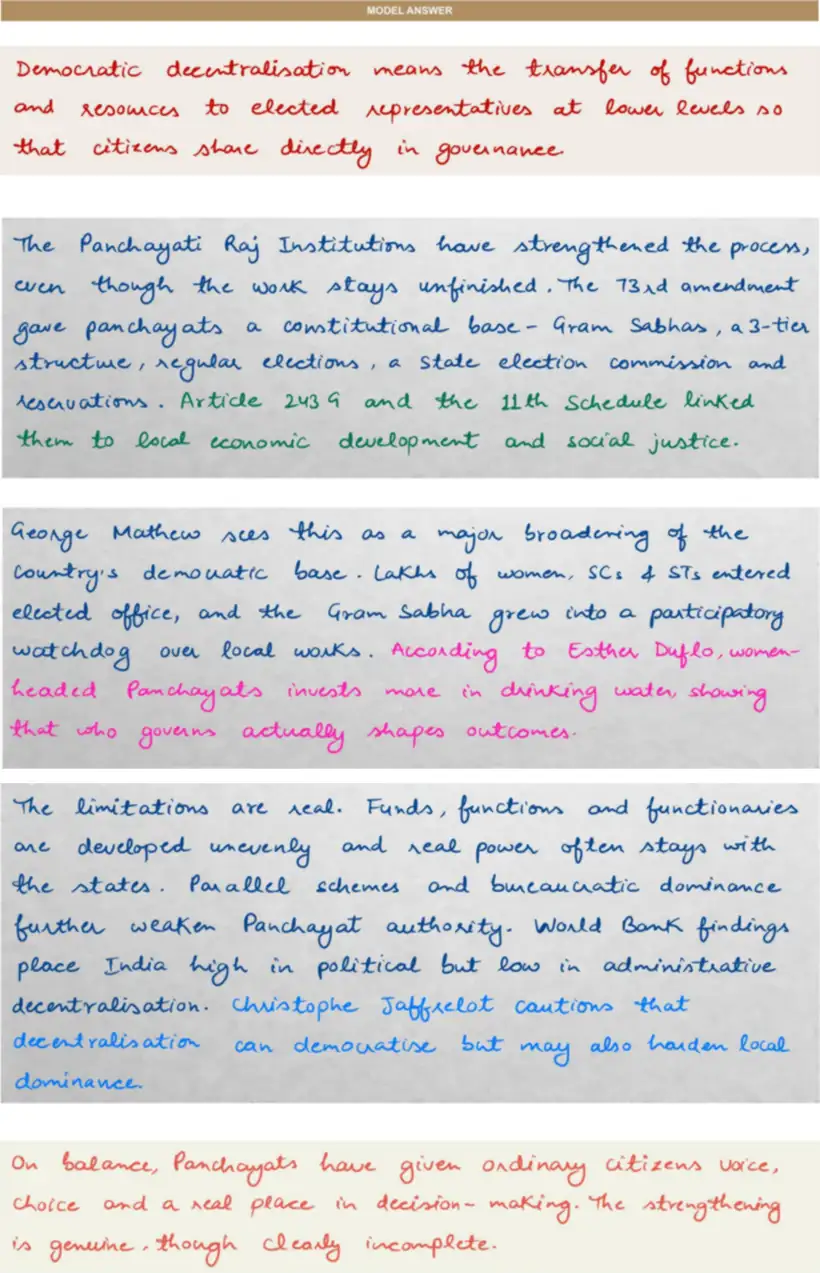 MODEL ANSWER
Democratic decentralisation means the transfer of functions
and resources to elected representatives at lower levels so
that citizens share directly in governance.
The Panchayati Raj Institutions have strengthened the process,
even though the work stays unfinished. The 73rd amendment
gave panchayats a constitutional base - Gram Sabhas, a 3-tier
structure, regular elections, a state election commission and
reservations. Article 243G and the 11th Schedule linked
them to local economic development and social justice.
George Mathew sees this as a major broadening of the
country's democratic base. Lakhs of women, SCs & STs entered
elected office, and the Gram Sabha grew into a participatory
watchdog over local works. According to Esther Duflo, women-
headed Panchayats invests more in drinking water, showing
that who governs actually shapes outcomes.
The limitations are real. Funds, functions and functionaries
are developed unevenly and real power often stays with
the states. Parallel schemes and bureaucratic dominance
further weaken Panchayat authority. World Bank findings
place India high in political but low in administrative
decentralisation. Christophe Jaffrelot cautions that
decentralisation can democratise but may also harden local
dominance.
On balance, Panchayats have given ordinary citizens voice,
choice and a real place in decision-making. The strengthening
is genuine, though clearly incomplete.